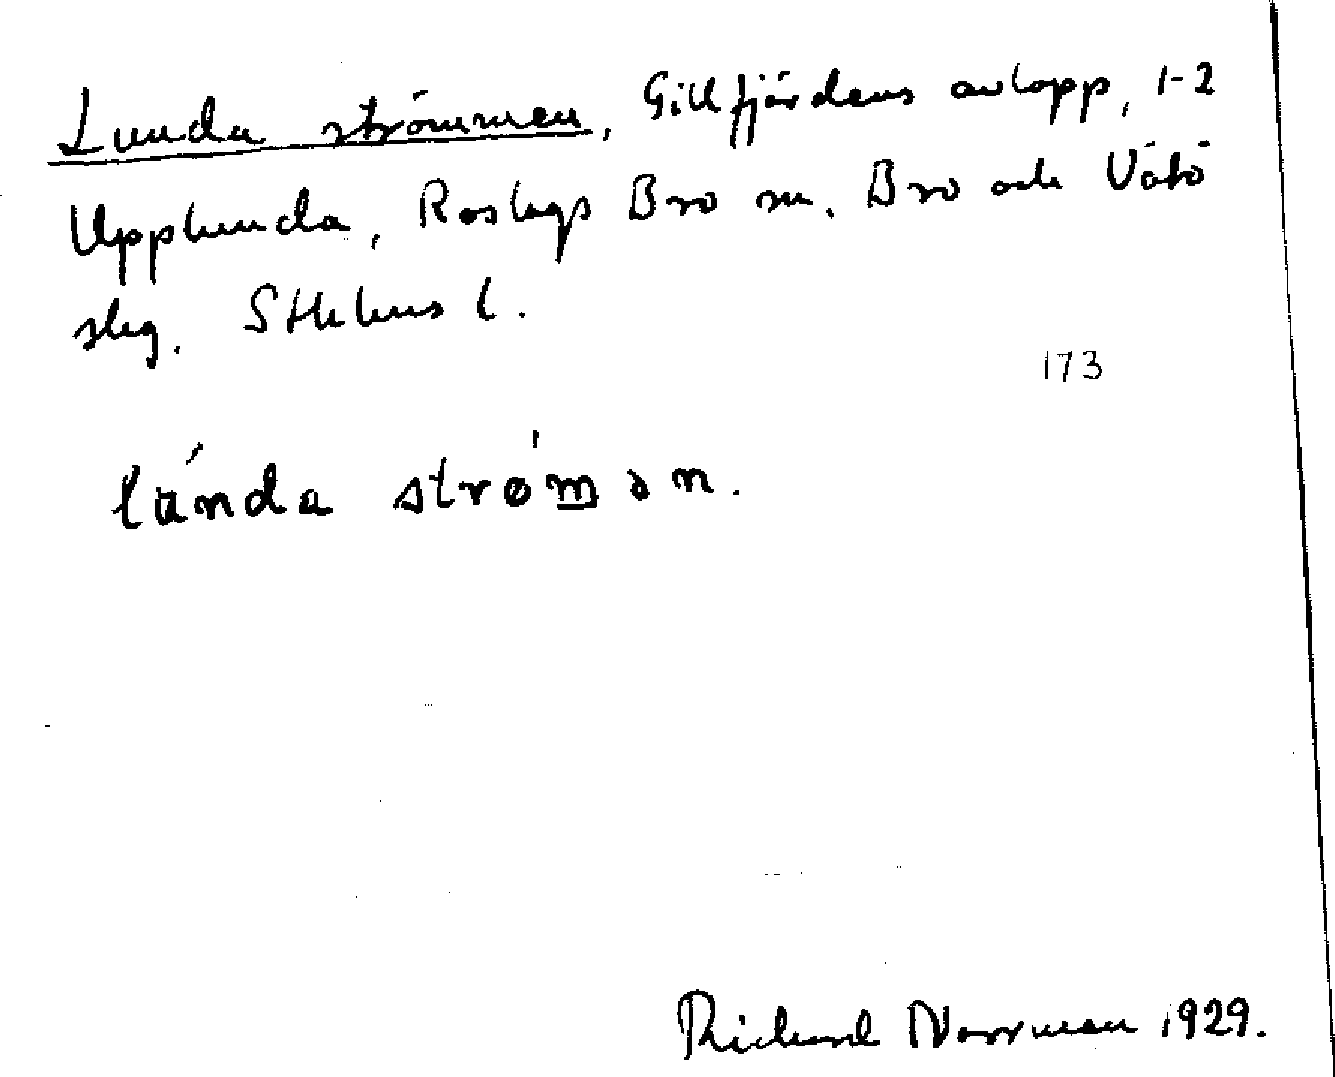 Lunda strömmen, Gillfjärdens avlopp, 1-2
Upplunda, Roslags Bro sn. Bro och Vätö
slag. Sthlms l.
173
lúnda strømən.
Richard Norrman 1929.